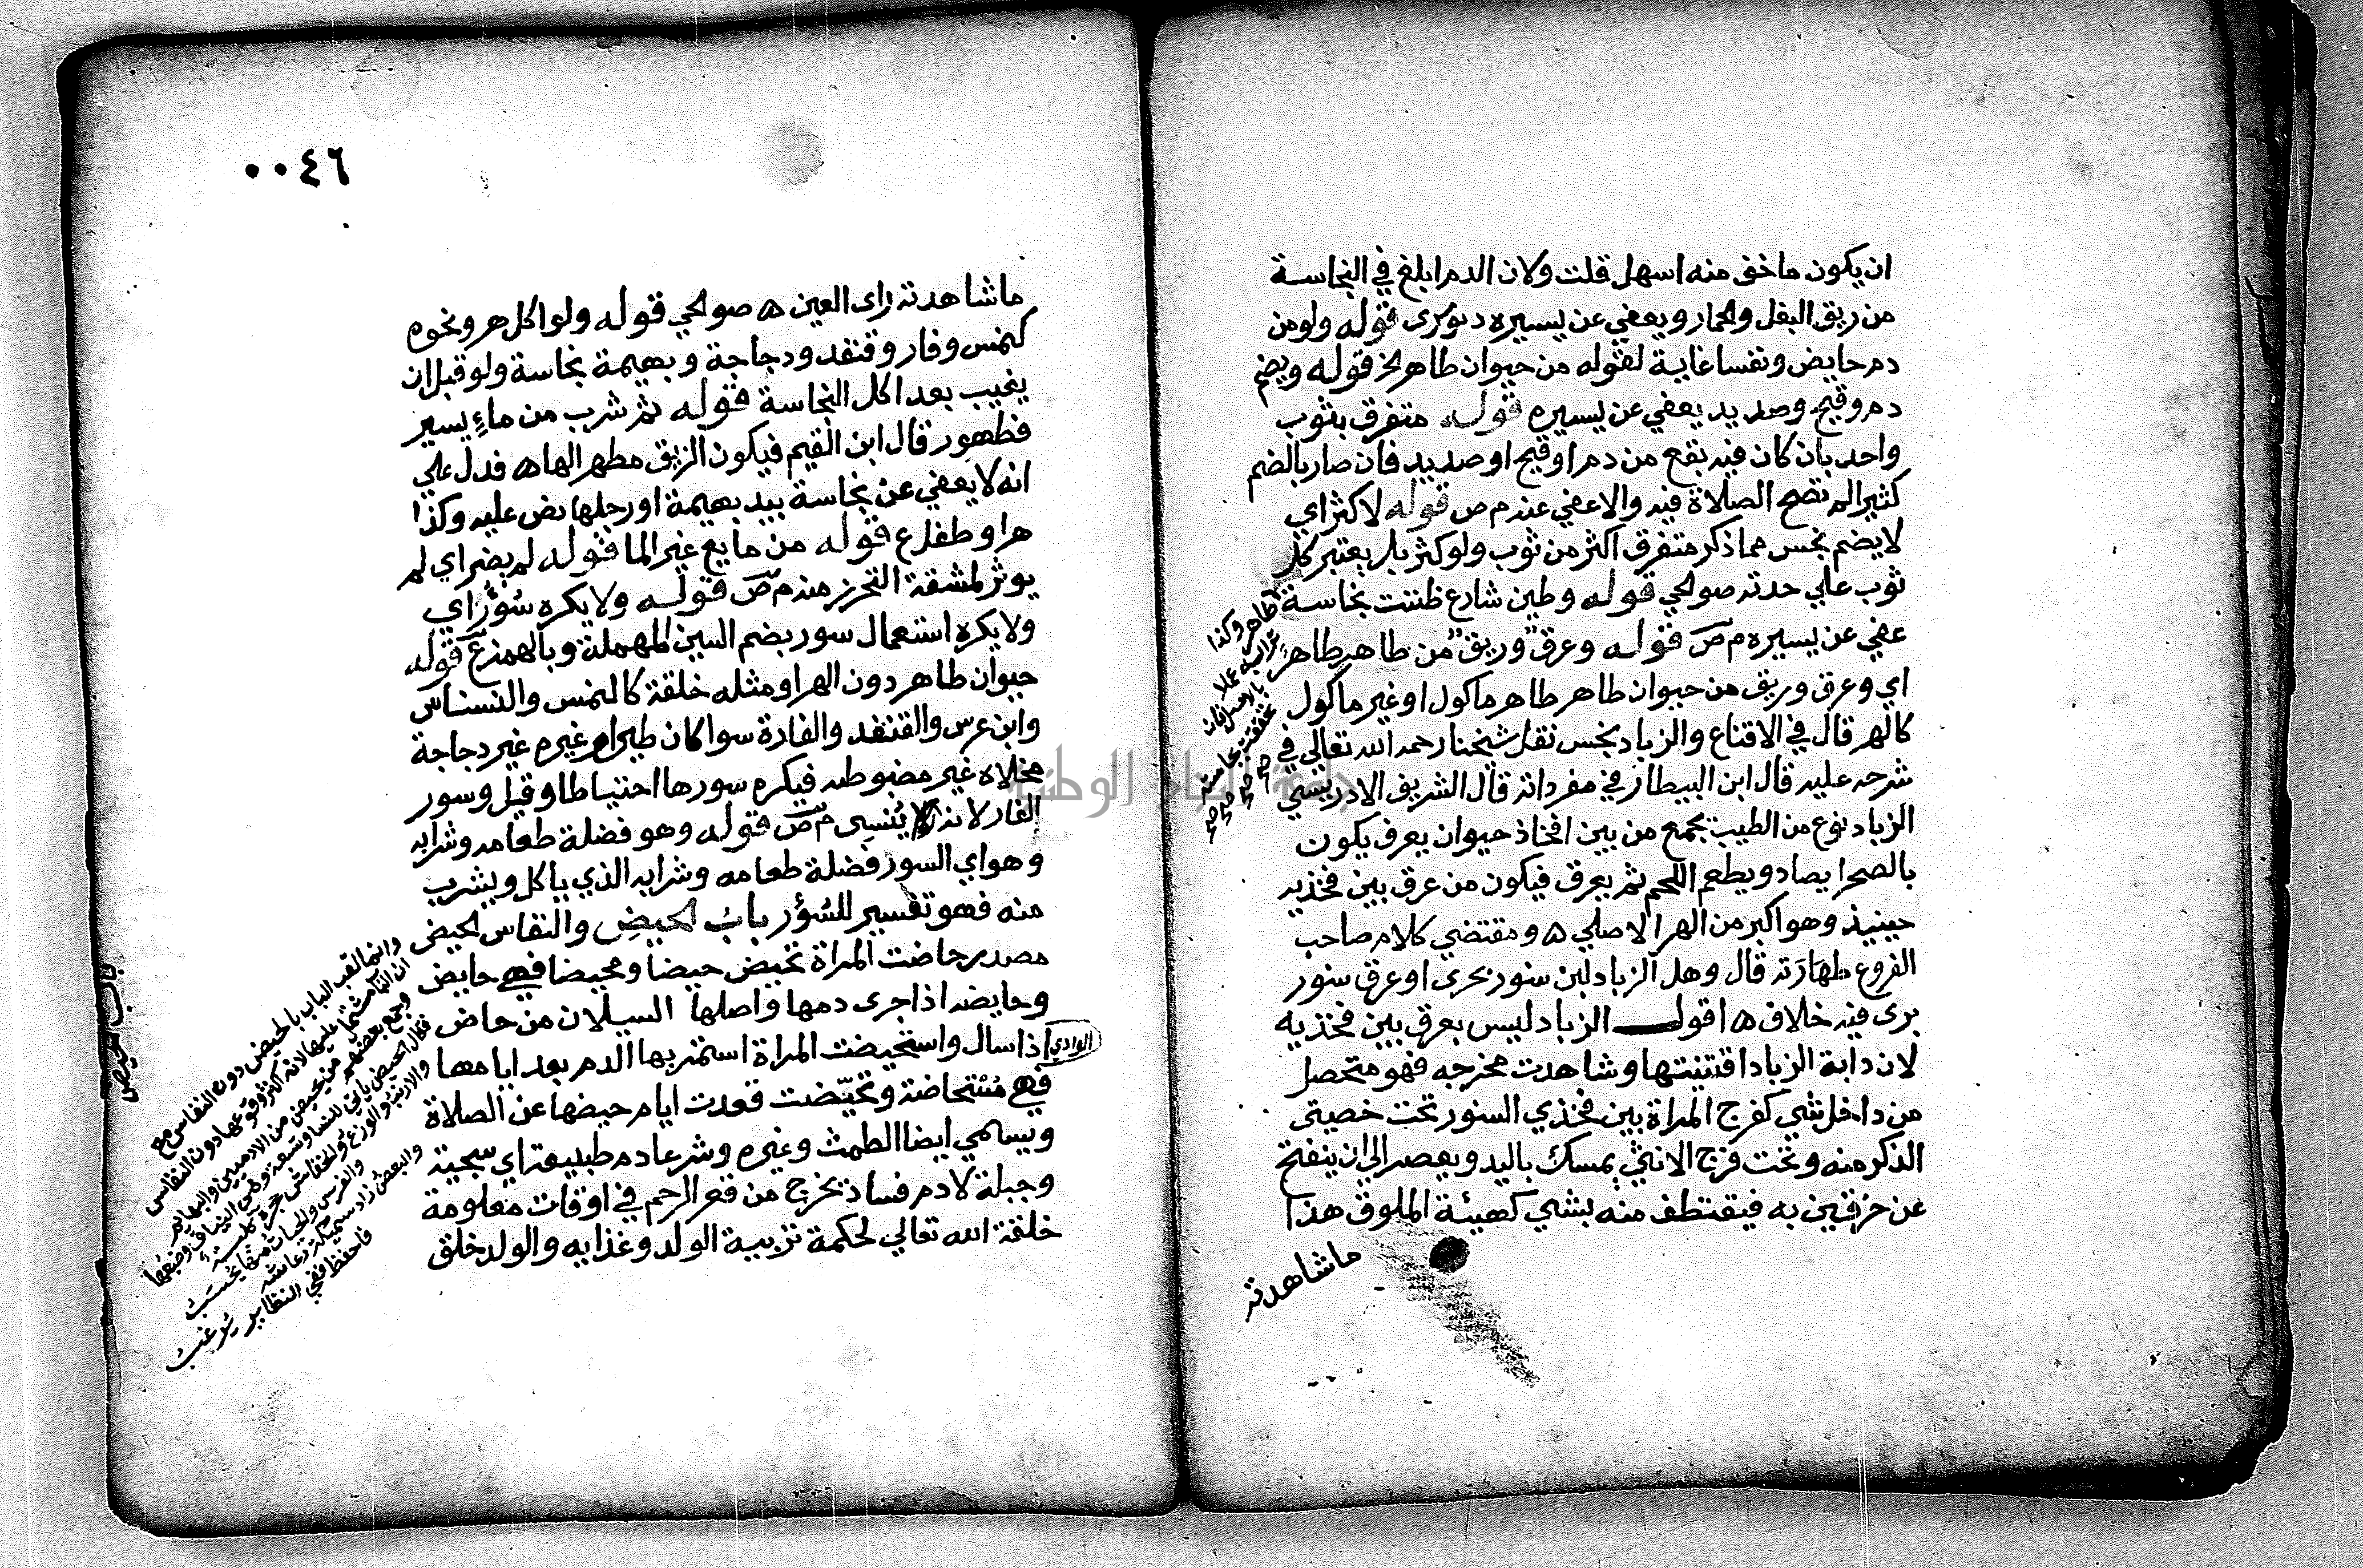 ان يكون ما خف منه اسهل قلت ولان الدم ابلغ في النجاسة
من ريق البغل والحمار ويعفي عن يسيره دنوشرى قوله ولو من
دم حايض ونفسا غاية لقوله من حيوان طاهر لخ قوله ويضم
دم وقيح وصديد يعفي عن يسيره قوله متفرق بثوب
واحد بان كان فيه بقع من دم او قيح او صديد فان صار بالضم
كثيرا لم تصح الصلاة فيه والا عفي عنه م ص قوله لا كثر اي
لا يضم نجس مما ذكر متفرق اكثر من ثوب ولو كثر بل يعتبر كل
ثوب علي حدته صوالحي قوله وطين شارع ظنت نجاسة
عفي عن يسيره م ص قوله وعرق وريق من طاهر طاهر
اي وعرق وريق من حيوان طاهر طاهر ماكول او غير ماكول
كالهر قال في الاقناع والزباد نجس نقل شيخنا رحمه الله تعالي في
شرحه عليه قال ابن البيطار في مفرداته قال الشريف الادريسي
الزباد نوع من الطيب يجمع من بين افخاذ حيوان يعرف يكون
بالصحرا يصاد ويطعم اللحم ثم يعرق فيكون من عرق بين فخذيه
حينيذ وهو اكبر من الهر الاصلي ه ومقتضي كلام صاحب
الفروع طهارته قال وهل الزباد لبن سنور بحرى او عرق سنور
برى فيه خلاف ه اقول الزباد ليس بعرق بين فخذيه
لان دابة الزباد اقتنيتها وشاهدت مخرجه فهو متحصل
من داخل شي كفرج المراة بين فخذي السنور تحت خصيتي
الذكر منه وتحت فرج الانثي يمسك باليد ويعصر الي ان ينفتح
عن خرقين به فيقتطف منه بشي كهيئة الملوق هذا
ماشاهدته
٠٠٤٦
ما شاهدته راى العين ه صوالحي قوله ولو اكل هر ونحوه
كنمس وفار وقنفد ودجاجة وبهيمة نجاسة ولو قبل ان
يغيب بعد اكل النجاسة قوله ثم شرب من ماء يسير
فطهور قال ابن القيم فيكون الريق مطهرا لها ه فدل علي
انه لا يعفي عن نجاسة بيد بهيمة او رجلها نص عليه وكذا
هر او طفل ع قوله من مايع غير الما قوله لم يضر اي لم
يوثر لمشقة التحرز منه م ص قوله ولا يكره سؤر اي
ولا يكره استعمال سور بضم السين المهملة وبالهمز ع قوله
حيوان طاهر دون الهر او مثله خلقة كالنمس والنسناس
وابن عرس والقنفد والفارة سوا كان طيرا ام غيره غير دجاجة
مخلاه غير مضبوطه فيكره سورها احتياطا وقيل وسور
الفار لانه يُنسى م ص قوله وهو فضلة طعامه وشرابه
وهو اي السور فضلة طعامه وشرابه الذي ياكل ويشرب
منه فهو تفسير للسُؤر باب الحيض والنفاس الحيض
مصدر حاضت المراة تحيض حيضا ومحيضا فهي حايض
وحايضه اذا جرى دمها واصلها السيلان من حاض
الوادي اذا سال واستحيضت المراة استمر بها الدم بعد ايامها
فهي مستحاضة وتحيّضت قعدت ايام حيضها عن الصلاة
ويسامي ايضا الطمث وغيره وشرعا دم طبيعة اي سجية
وجبلة لا دم فساد يخرج من قعر الرحم في اوقات معلومة
خلقة الله تعالي لحكمة تربية الولد وغذايه والولد خلق
باب الحيض
وانما لقب الباب بالحيض دون النفاس مع
لانه اكثر وقوعها دون النفاس
وجمع بعضهم من يحيض من الادميين والبهايم
فقال الحيض ياتي للنسا وتسعة وهي النياق وضبعها
والارنب والوزغ والخفاش حجرة كلبة
والبعض زاد سميكة رعاشة
فاحفظ ففي النظاير يُرغب